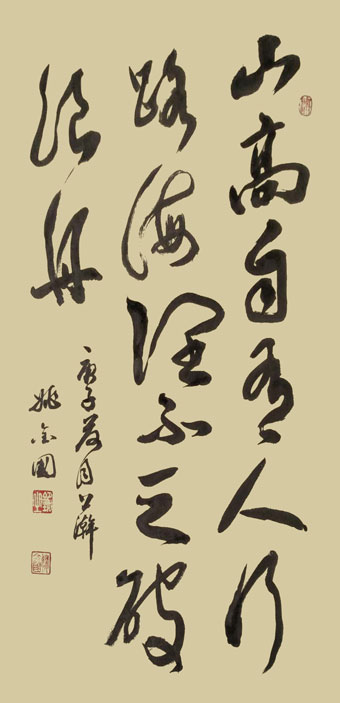 山高自有人行
路海不乏破
浪舟
庚子荷月
姚金國